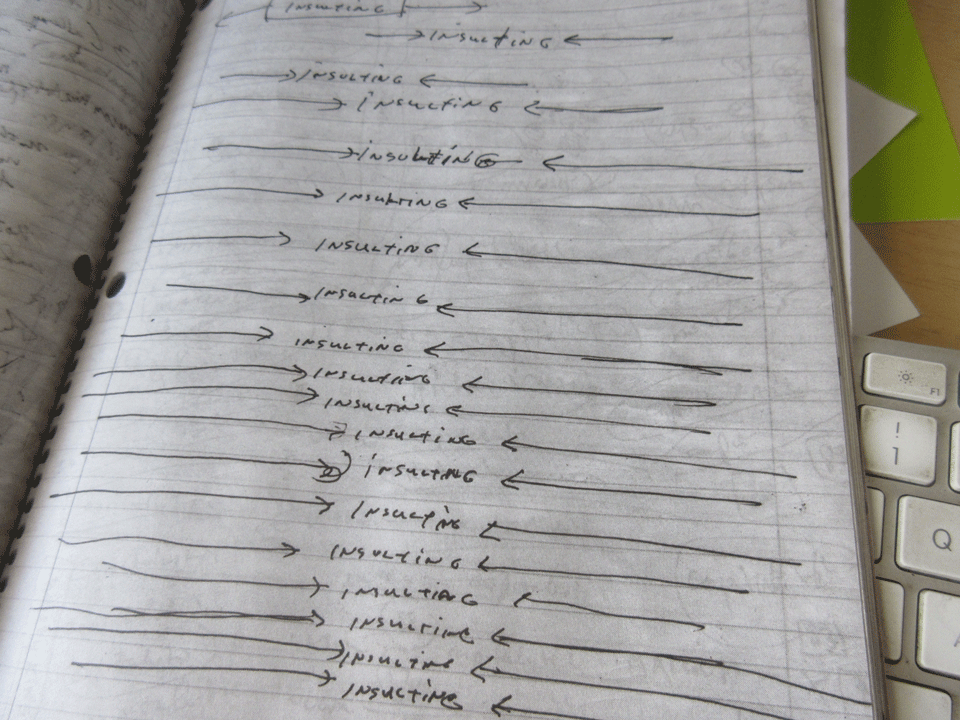 INSULTING
INSULTING
INSULTING
INSULTING
INSULTING
INSULTING
INSULTING
INSULTING
INSULTING
INSULTING
INSULTING
INSULTING
INSULTING
INSULTING
INSULTING
INSULTING
INSULTING
INSULTING
INSULTING
F1
!
1
Q